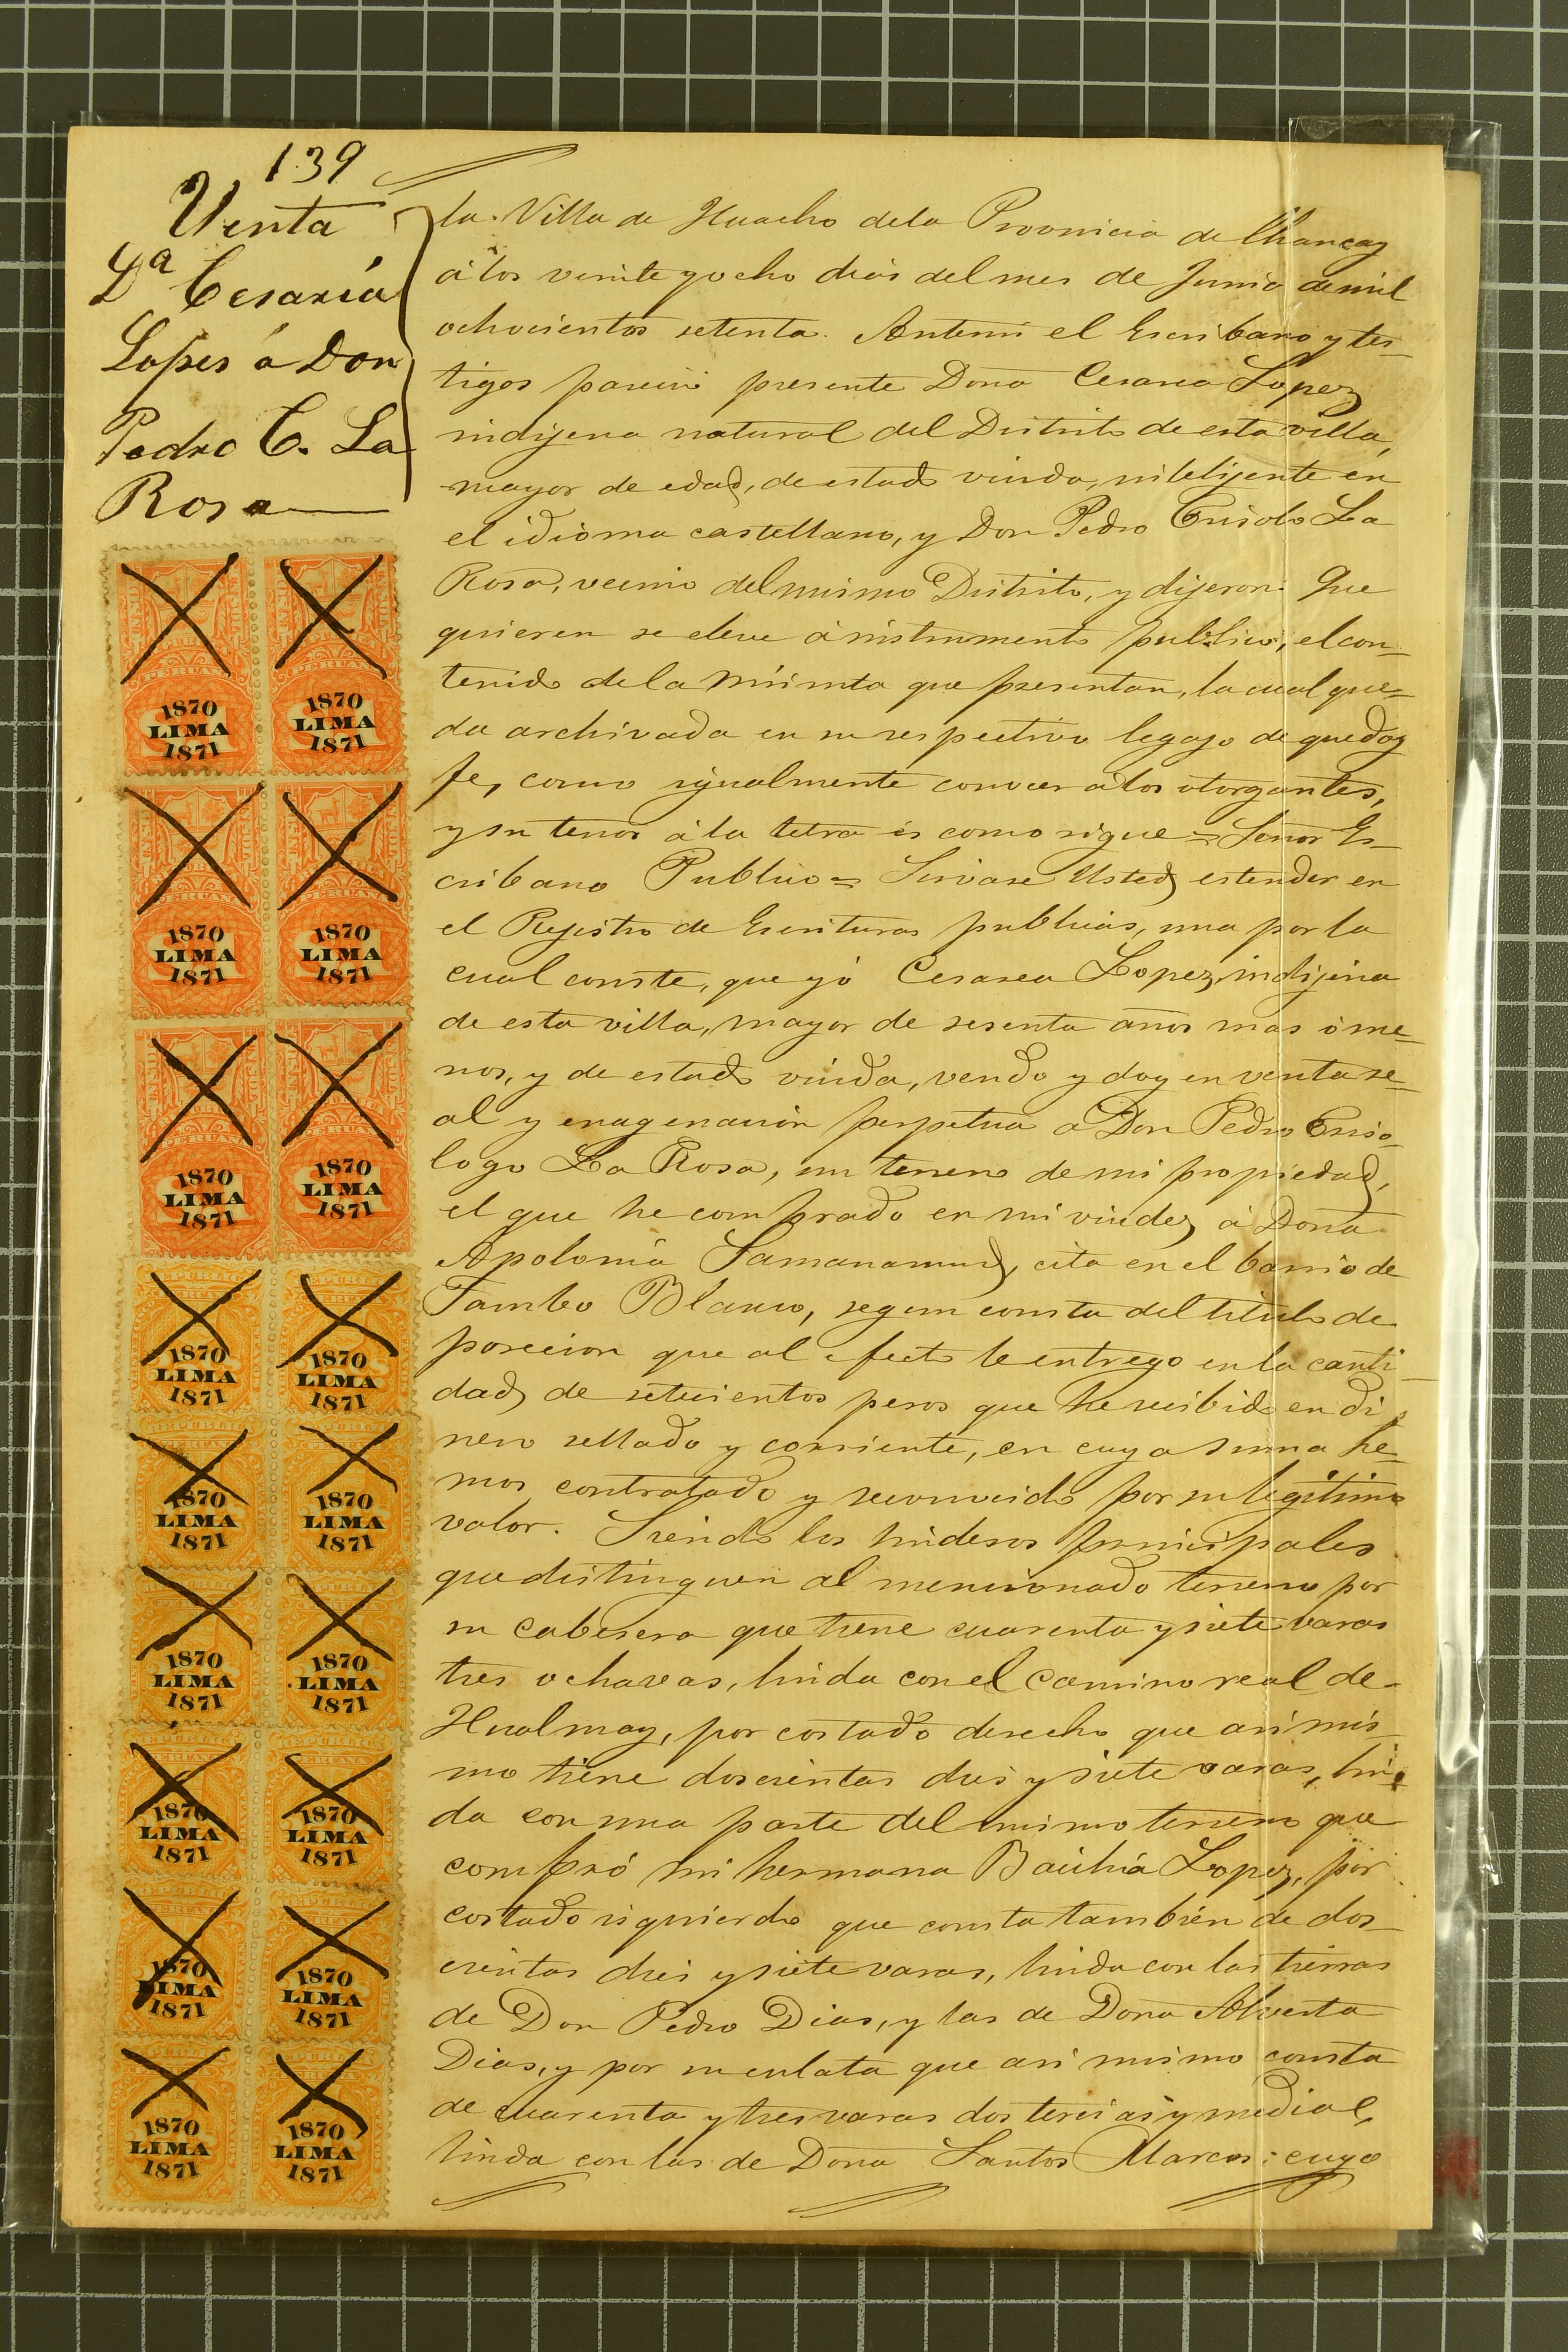 139
Venta
Dª Cesaréa
Lopes á Don
Pedro C. La
Rosa
la Villa de Huacho dela Provincia de Chancay
á los veinte y ocho dias del mes de Junio de mil
ochocientos setenta. Antemi el Escribano y tes-
tigos parecio presente Dona Cesarea Lopez
indijena natural del Distrito de esta villa,
mayor de edad, de estado viuda, intelijente en
el idioma castellano, y Don Pedro Crisolo La
Rosa, vecino del mismo Distrito, y dijeron: Que
quieren se eleve á instrumento publico, el con-
tenido de la minuta que presentan, la cual que-
da archivada en su respectivo legajo de que doy
fe, como igualmente conocer a los otorgantes,
y su tenor á la letra es como sigue = Señor Es-
cribano Publico = Sirvase Usted estender en
el Rejistro de Escrituras publicas, una por la
cual conste, que yó Cesarea Lopez, indijena
de esta villa, mayor de sesenta años mas ó me-
nos, y de estado viuda, vendo y doy en venta re-
al y enagenacion perpetua a Don Pedro Criso-
logo La Rosa, un terreno de mi propiedad,
el que he comprado en mi viudez á Dona
Apolonia Samanamud, cita en el barrio de
Tambo Blanco, segun consta del titulo de
posecion que al efecto le entrego en la canti-
dad de setecientos pesos que he recibido en di-
nero sellado y corriente, en cuya suma he-
mos contratado y reconocido por su legitimo
valor. Siendo los linderos principales
que distinguen al mencionado terreno por
su cabesera que tiene cuarenta y siete varas
tres ochavas, linda con el camino real de
Hualmay, por costado derecho que asi mis-
mo tiene doscientas dies y siete varas, lin-
da con una parte del mismo terreno que
compró mi hermana Lopez, por
costado isquierdo que consta tambien de dos-
cientas dies y siete varas, linda con las tierras
de Don Pedro Dias, y las de Dona Alverta
Dias, y por su culata que asi mismo consta
de cuarenta y tres varas dos tercias y media,
linda con las de Dona Santos Marcos: cuyo
PERUANA
1870
LIMA
1871
PERUANA
1870
LIMA
1871
PERUANA
1870
LIMA
1871
PERUANA
1870
LIMA
1871
PERUANA
1870
LIMA
1871
PERUANA
1870
LIMA
1871
1870
LIMA
1871
1870
LIMA
1871
1870
LIMA
1871
1870
LIMA
1871
1870
LIMA
1871
1870
LIMA
1871
1870
LIMA
1871
1870
LIMA
1871
1870
LIMA
1871
1870
LIMA
1871
1870
LIMA
1871
1870
LIMA
1871